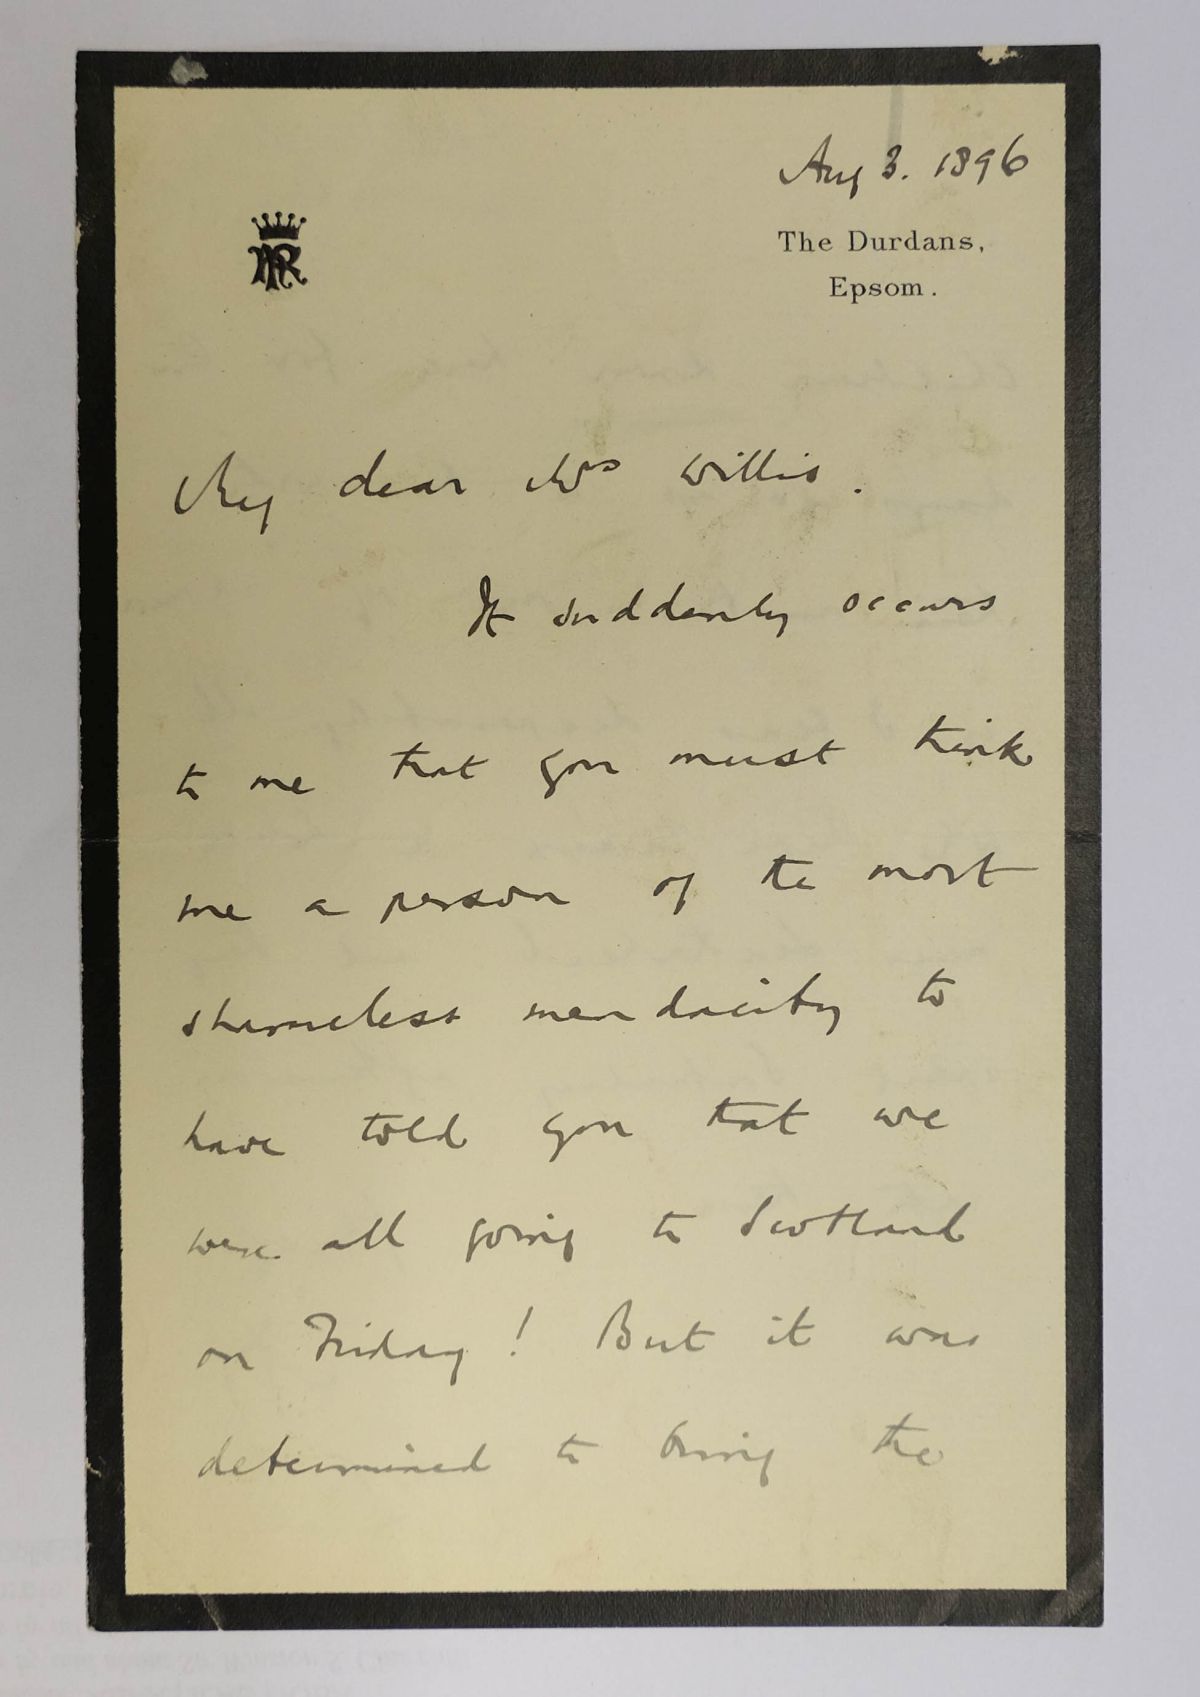 Aug 3. 1896
The Durdans,
Epsom.
My dear Mrs Willis.
It suddenly occurs
to me that you must think
me a person of the most
shameless mendacity to
have told you that we
were all going to Scotland
on Friday! But it was
determined to bring the